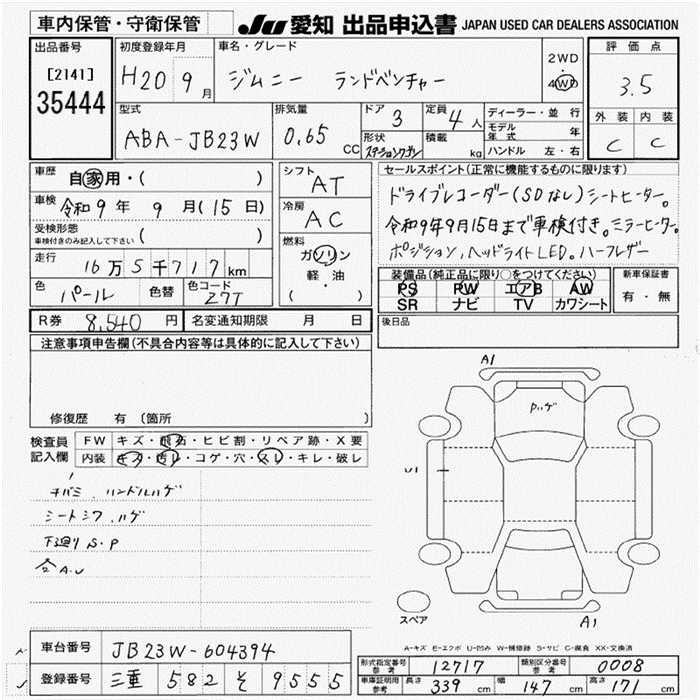 車内保管・守衛保管
JU 愛知 出品申込書 JAPAN USED CAR DEALERS ASSOCIATION
出品番号
[2141]
35444
初度登録年月
H20 9月
車名・グレード
ジムニー ランドベンチャー
2WD
・
4WD
評価点
3.5
外装 内装
C C
型式
ABA-JB23W
排気量
0.65 CC
ドア 3
定員 4人
形状 ステーションワゴン
積載 kg
ディーラー・並行
モデル年式 年
ハンドル 左・右
車歴 自家用・( )
車検 令和9年9月(15日)
受検形態
車検付きのみ記入して下さい ( )
走行 16万5千717km
色 パール 色替 色コード Z7T
シフト AT
冷房 AC
燃料
ガソリン
軽・油
( )
セールスポイント(正常に機能するものに限ります)
ドライブレコーダー(SDなし)シートヒーター。
令和9年9月15日まで車検付き。ミラーヒーター。
ポジション、ヘッドライトLED。ハーフレザー
装備品(純正品に限り○をつけてください)
PS PW エアB AW
SR ナビ TV カワシート
新車保証書
有・無
R券 8,540円 名変通知期限 月 日
後日品
注意事項申告欄(不具合内容等は具体的に記入して下さい)
修復歴 有 (箇所 )
検査員記入欄
FW キズ・飛石・ヒビ割・リペア跡・X要
内装 キズ・汚レ・コゲ・穴・スレ・キレ・破レ
キバミ、ハンドルハゲ
シートシワ、ハゲ
下廻りS.P
合A.U
A1
Pハゲ
U1
スペア
A1
A-キズ E-エクボ U-凹み W-補修跡 S-サビ C-腐食 XX-交換済
車台番号 JB23W-604394
登録番号 三重 582 そ 9555
形式指定番号 参考 12717 類別区分番号 参考 0008
車庫証明用 参考 長さ 339cm 幅 147cm 高さ 171cm